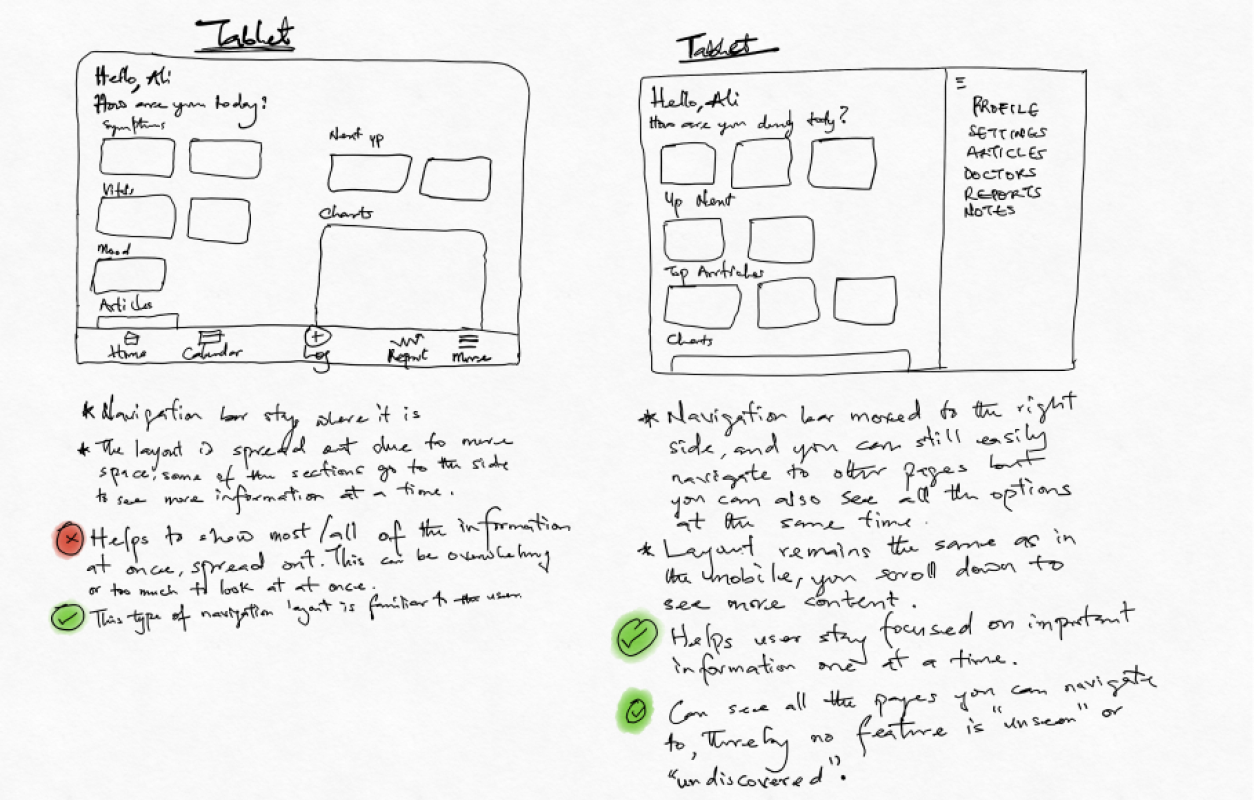 Tablet
Hello, Ali
How are you today?
Symptoms
Next up
Vitals
Charts
Mood
Articles
Home
Calendar
Log
Report
More
* Navigation bar stay where it is
* The layout is spread out due to more
space, some of the sections go to the side
to see more information at a time.
Helps to show most/all of the information
at once, spread out. This can be overwhelming
or too much to look at at once.
This type of navigation layout is familiar to the user.
Tablet
Hello, Ali
How are you doing today?
Up Next
Top Articles
Charts
PROFILE
SETTINGS
ARTICLES
DOCTORS
REPORTS
NOTES
* Navigation bar moved to the right
side, and you can still easily
navigate to other pages but
you can also see all the options
at the same time.
* Layout remains the same as in
the mobile, you scroll down to
see more content.
Helps user stay focused on important
information one at a time.
Can see all the pages you can navigate
to, thereby no feature is "unseen" or
"undiscovered".